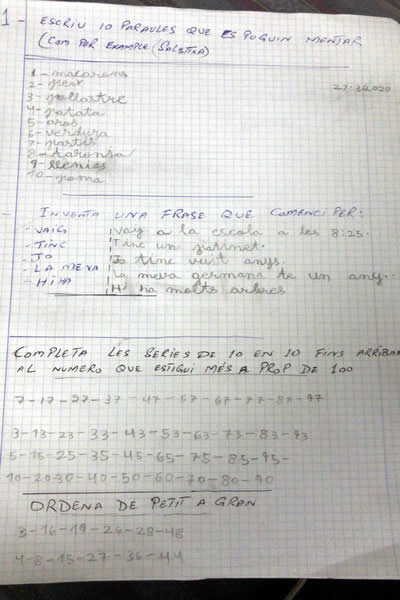 1 - ESCRIU 10 PARAULES QUE ES PUGUIN MENJAR
(COM PER EXAMPLE: SALSITXA)
1 - macarons
2 - peix
3 - pollastre
4 - patata
5 - aros
6 - verdura
7 - pastis
8 - taronsa
9 -
10 - poma
INVENTA UNA FRASE QUE COMENCI PER:
- VAIG Vaig a la escola a les 8:25.
- TINC Tinc un patinet.
- JO Jo tinc vuit anys.
- LA MEVA La meva germana te un any.
- HI HA Hi ha molts arbres
COMPLETA LES SERIES DE 10 EN 10 FINS ARRIBAR
AL NUMERO QUE ESTIGUI MÉS A PROP DE 100
7-17-27-37-47-57-67-77-87-97
3-13-23-33-43-53-63-73-83-93
5-15-25-35-45-65-75-85-95-
10-20-30-40-50-60-70-80-90
ORDENA DE PETIT A GRAN
3-16-19-24-28-48
4-8-15-27-36-44